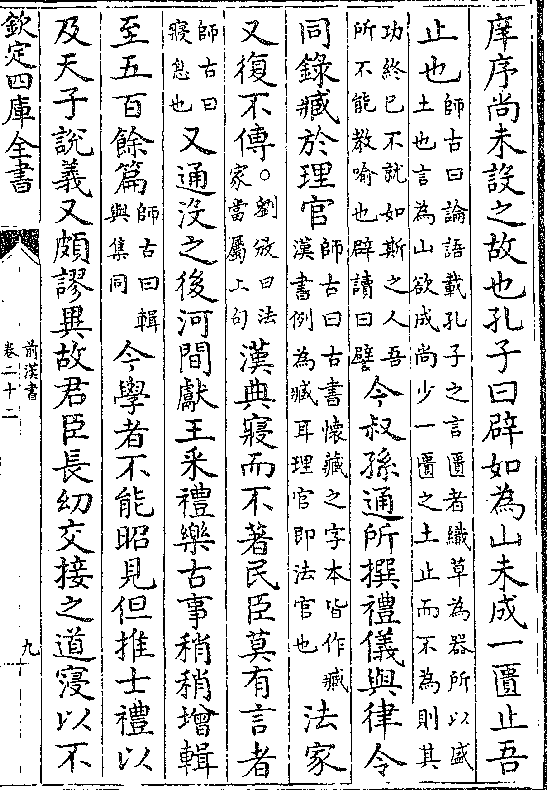 庠序尚未設之故也孔子曰辟如為山未成一匱止吾
止也師古曰論語載孔子之言匱者織草為器所以盛土也言為山欲成尚少一匱之土止而不為則其
功終已不就如斯之人吾所不能教喻也辟讀曰譬今叔孫通所撰禮儀與律令
同錄臧於理官師古曰古書懷藏之字本皆作臧漢書例為臧耳理官即法官也法家
又復不傳○劉攽曰法家當屬上句漢典寑而不著民臣莫有言者
師古曰寑息也又通没之後河間獻王采禮樂古事稍稍增輯
至五百餘篇師古曰輯與集同今學者不能昭見但推士禮以
及天子說義又頗謬異故君臣長幼交接之道寖以不
欽定四庫全書
前漢書
卷二十二
九